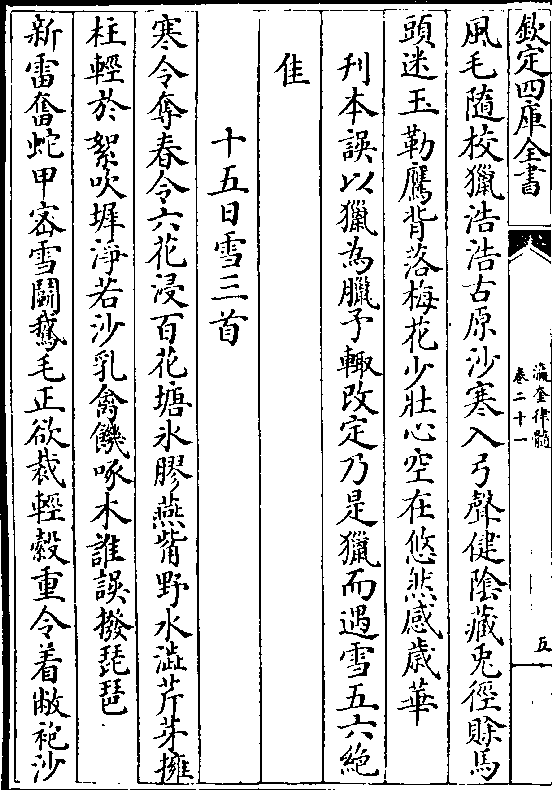 欽定四庫全書
瀛奎律髓
卷二十一
五
風毛隨校獵浩浩古原沙寒入弓聲健陰藏兎徑賖馬
頭迷玉勒鷹背落梅花少壯心空在悠然感歳華
刋本誤以獵為臘予輙改定乃是獵而遇雪五六絶
佳
十五日雪三首
寒令奪春令六花浸百花塘氷膠燕觜野水澁芹芽擁
柱輕於絮吹墀淨若沙乳禽饑啄木誰誤撥琵琶
新雷奮蛇甲宻雪鬭鵞毛正欲裁輕縠重令着敝袍沙